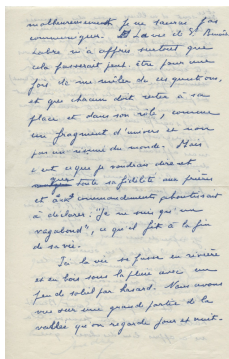 malheureusement je ne saurais pas
communiquer. Et Laure et St Benoit
Labre m'a appris surtout que
cela passerait peut-être pour une
fois de me mêler de ces questions,
et que chacun doit rester à sa
place et dans son rôle, comme
un fragment d'univers et non
pas un résumé du monde. Mais
c'est ce que je voudrais dire et
toute sa fidélité aux prières
et aux commandements aboutissait
à déclarer : Je ne suis qu'un
vagabond", ce qu'il fût à la fin
de sa vie.
Ici la vie se passe en rivière
et en bois sous la pluie avec un
peu de soleil par hasard. Nous avons
vue sur une grande partie de la
vallée qu'on regarde jour et nuit.